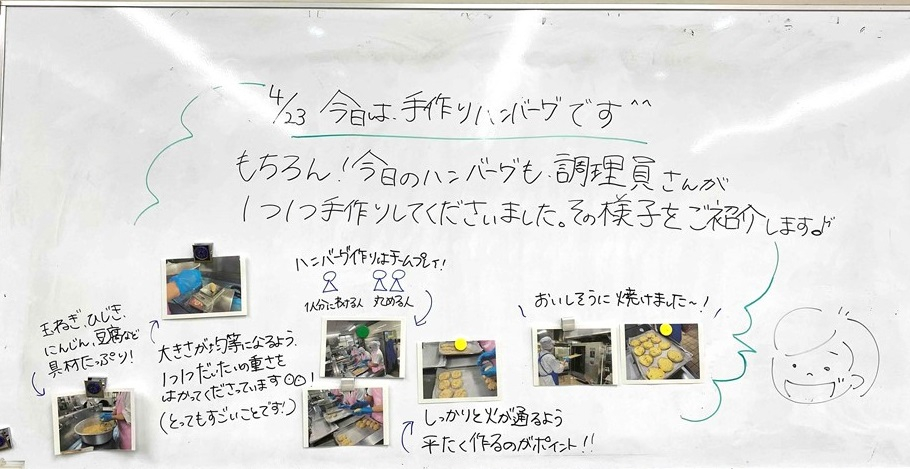 4/23 今日は、手作りハンバーグです^^
もちろん！今日のハンバーグも、調理員さんが
1つ1つ手作りしてくださいました。その様子をご紹介します♪
玉ねぎ、ひじき、
にんじん、豆腐など
具材たっぷり！
大きさが均等になるよう、
1つ1つだいたいの重さを
はかってくださっています◎◎！
（とってもすごいことです！）
ハンバーグ作りはチームプレイ！
1人分にわける人 丸める人
しっかりと火が通るよう
平たく作るのがポイント！！
おいしそうに焼けました〜！